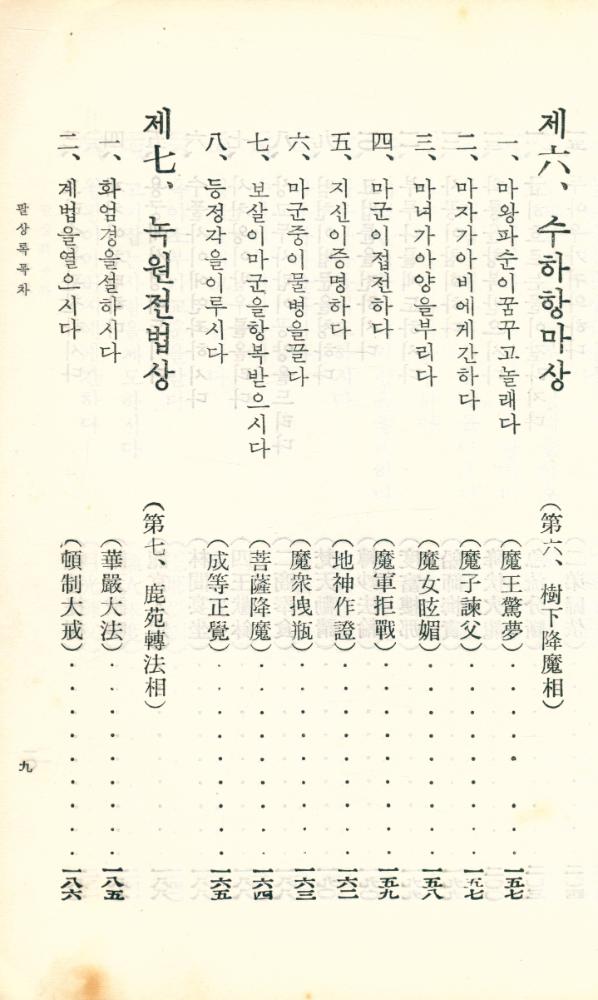 제六、수하항마상 (第六、樹下降魔相)
一、마왕파순이꿈꾸고놀래다 (魔王驚夢)············一五七
二、마자가아비에게간하다 (魔子諫父)············一五七
三、마녀가아양을부리다 (魔女眩媚)············一五八
四、마군이접전하다 (魔軍拒戰)············一五九
五、지신이증명하다 (地神作證)············一六二
六、마군중이물병을끌다 (魔衆拽瓶)············一六三
七、보살이마군을항복받으시다 (菩薩降魔)············一六四
八、등정각을이루시다 (成等正覺)············一六五
제七、녹원전법상 (第七、鹿苑轉法相)
一、화엄경을설하시다 (華嚴大法)············一八五
二、계법을열으시다 (頓制大戒)············一八六
팔상록목차
九